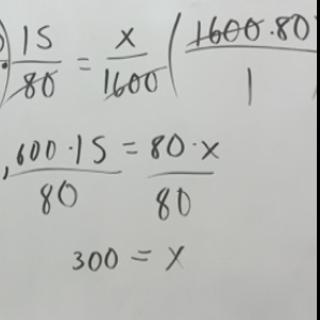 ) 15/80 = x/1600 (1600·80/1
,600·15/80 = 80·x/80
300 = x